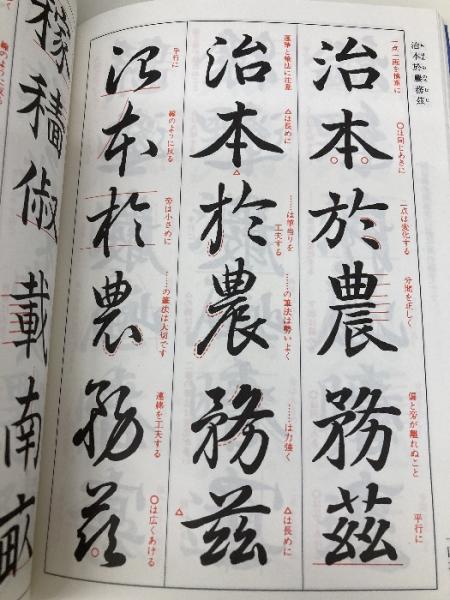 治本於農務茲
治本於農務茲
一点一画を慎重に
〇は同じあきに
一点は変化する
分間を正しく
偏と旁が離れぬこと
平行に
治本於農務茲
運筆と筆法に注意
△は長めに
……は筆当りを
工夫する
……の筆法は勢いよく
……は力強く
△は長めに
治本於農務茲
平行に
線のように反る
旁は小さめに
……の筆法は大切です
連綿を工夫する
〇は広くあける
稼穡俶載南畝
のように反る